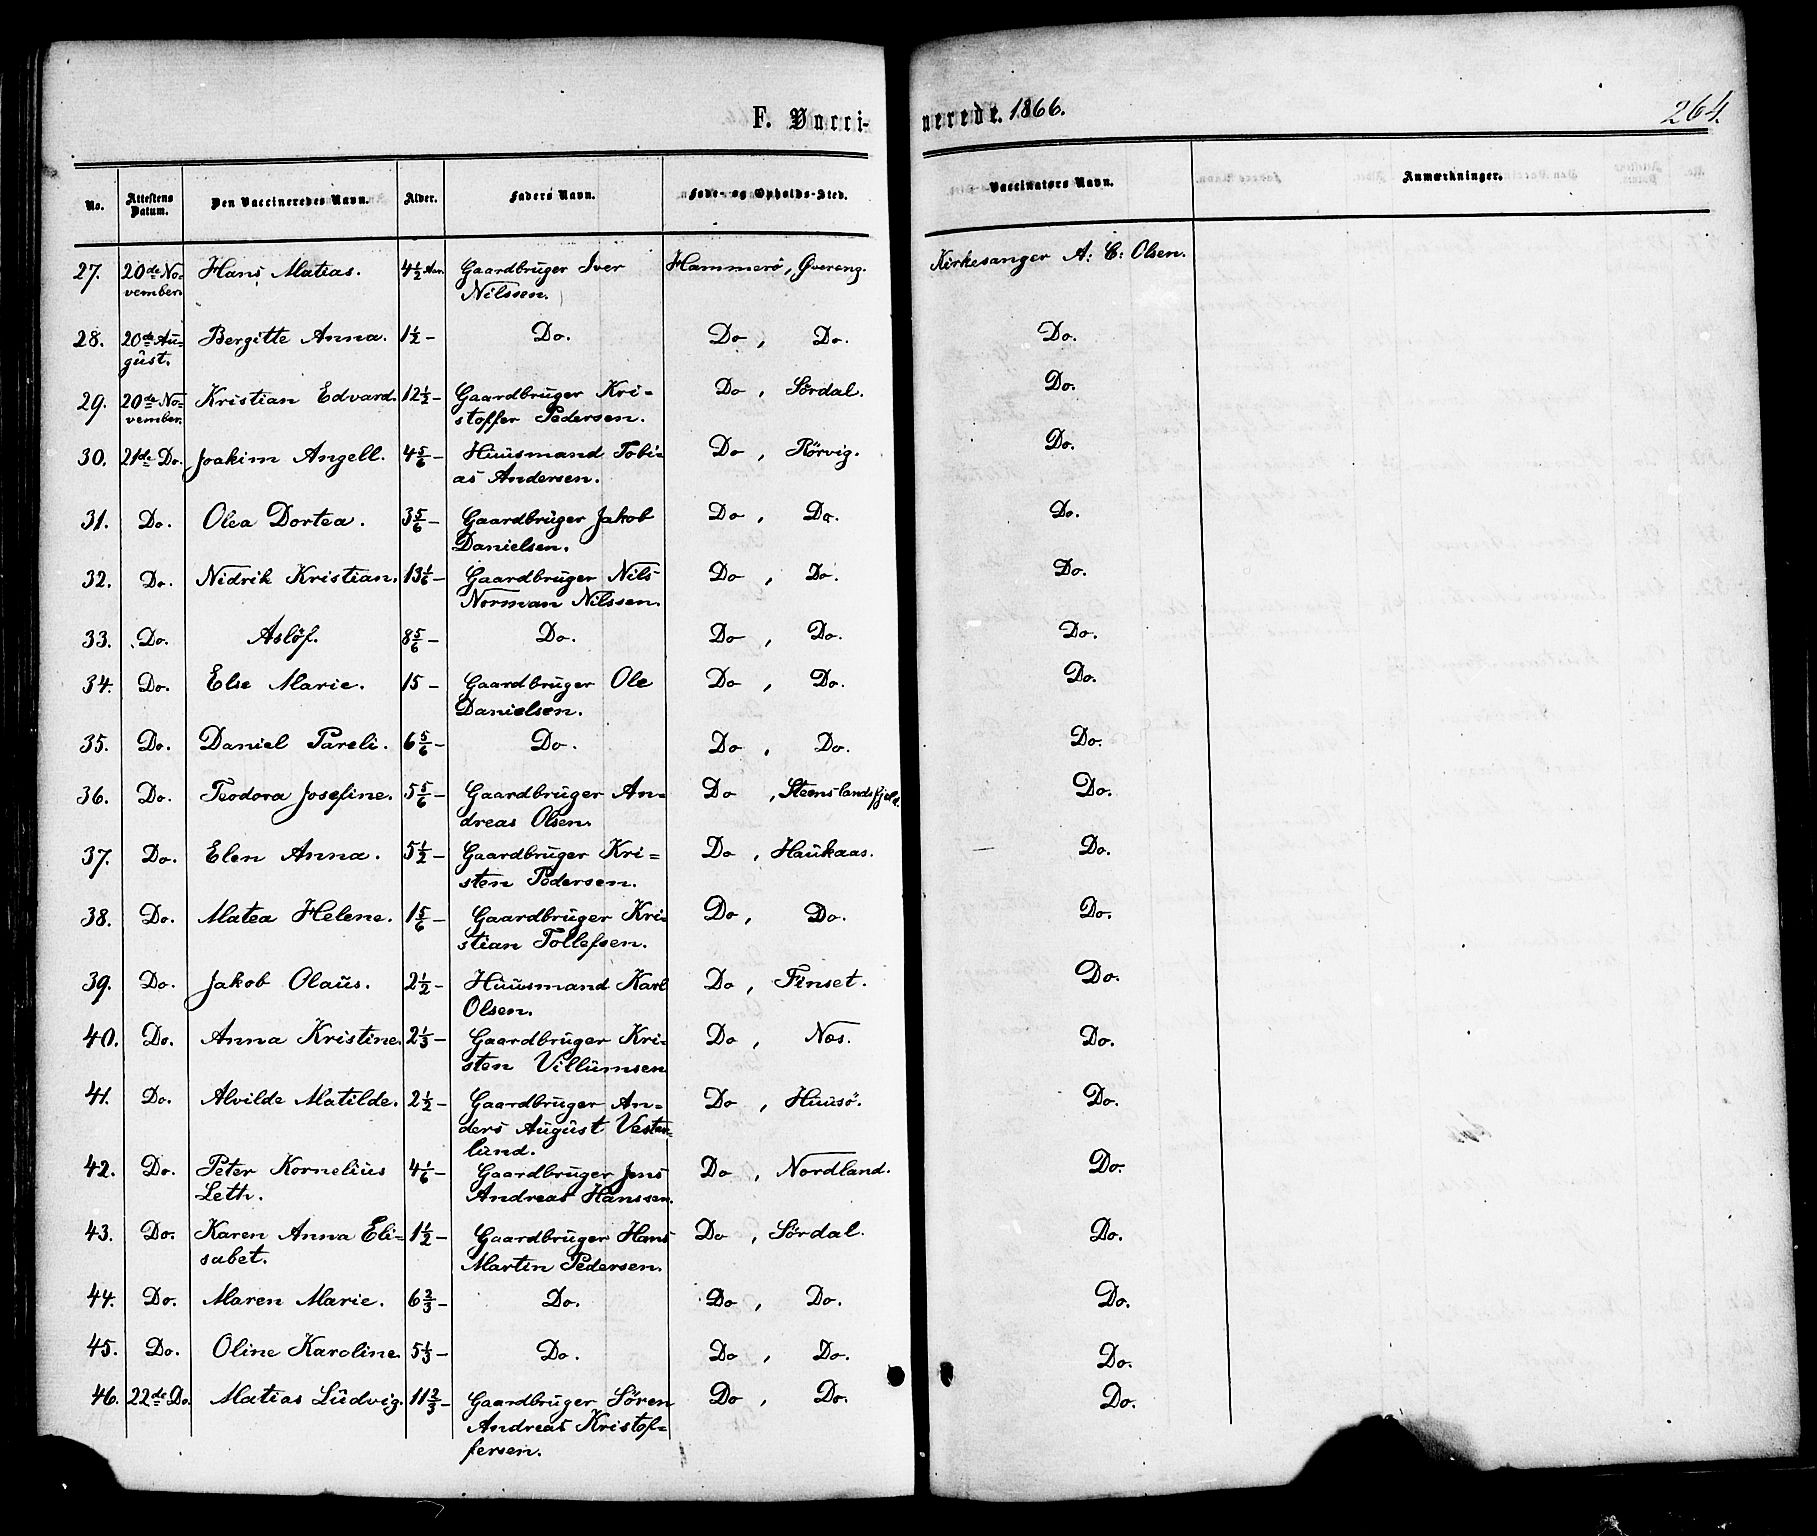 F. Vacci-
nerede. 1866.
264.
No. Attestens Datum. Den Vaccineredes Navn. Alder. Faders Navn. Føde- og Opholds-Sted. Vaccinators Navn. Anmærkninger.
27. 20de No- Hans Matias. 4 1/2 Aar. Gaardbruger Iver Hammerö, Øvereng. Kirkesanger A: C: Olsen.
vember. Nilssen.
28. 20de Au- Bergitte Anna. 1 1/2 - Do. Do, Do. Do.
gust.
29. 20de No- Kristian Edvard. 12 1/2 - Gaardbruger Kri- Do, Sördal. Do.
vember. stoffer Pedersen.
30. 21de Do. Joakim Angell. 4 5/6 - Huusmand Tobi- Do, Rörvig. Do.
as Andersen.
31. Do. Olea Dortea. 3 5/6 - Gaardbruger Jakob Do, Do. Do.
Danielsen.
32. Do. Nidrik Kristian. 13 1/6 - Gaardbruger Nils Do, Do. Do.
Norman Nilssen.
33. Do. Aslöf. 8 5/6 - Do. Do, Do. Do.
34. Do. Else Marie. 15 - Gaardbruger Ole Do, Do. Do.
Danielsen.
35. Do. Daniel Pareli. 6 5/6 - Do. Do, Do. Do.
36. Do. Teodora Josefine. 5 5/6 - Gaardbruger An- Do, Steenslandsfjeld. Do.
dreas Olsen.
37. Do. Elen Anna. 5 1/2 - Gaardbruger Kri- Do, Haukaas. Do.
sten Pedersen.
38. Do. Matea Helene. 1 5/6 - Gaardbruger Kri- Do, Do. Do.
stian Tollefsen.
39. Do. Jakob Olaus. 2 1/2 - Huusmand Karl Do, Finset. Do.
Olsen.
40. Do. Anna Kristine. 2 1/3 - Gaardbruger Kri- Do, Næs. Do.
sten Villumsen
41. Do. Alvilde Matilde. 2 1/2 - Gaardbruger An- Do, Huusö. Do.
ders August Vester-
lund.
42. Do. Peter Kornelius 4 1/6 - Gaardbruger Jens Do, Nordland. Do.
Leth. Andreas Hanssen.
43. Do. Karen Anna Eli- 1 1/2 - Gaardbruger Hans Do, Sördal. Do.
sabet. Martin Pedersen.
44. Do. Maren Marie. 6 2/3 - Do. Do, Do. Do.
45. Do. Oline Karoline. 5 1/3 - Do. Do, Do. Do.
46. 22de Do. Matias Ludvig. 11 2/3 - Gaardbruger Sören Do, Do. Do.
Andreas Kristof-
fersen.